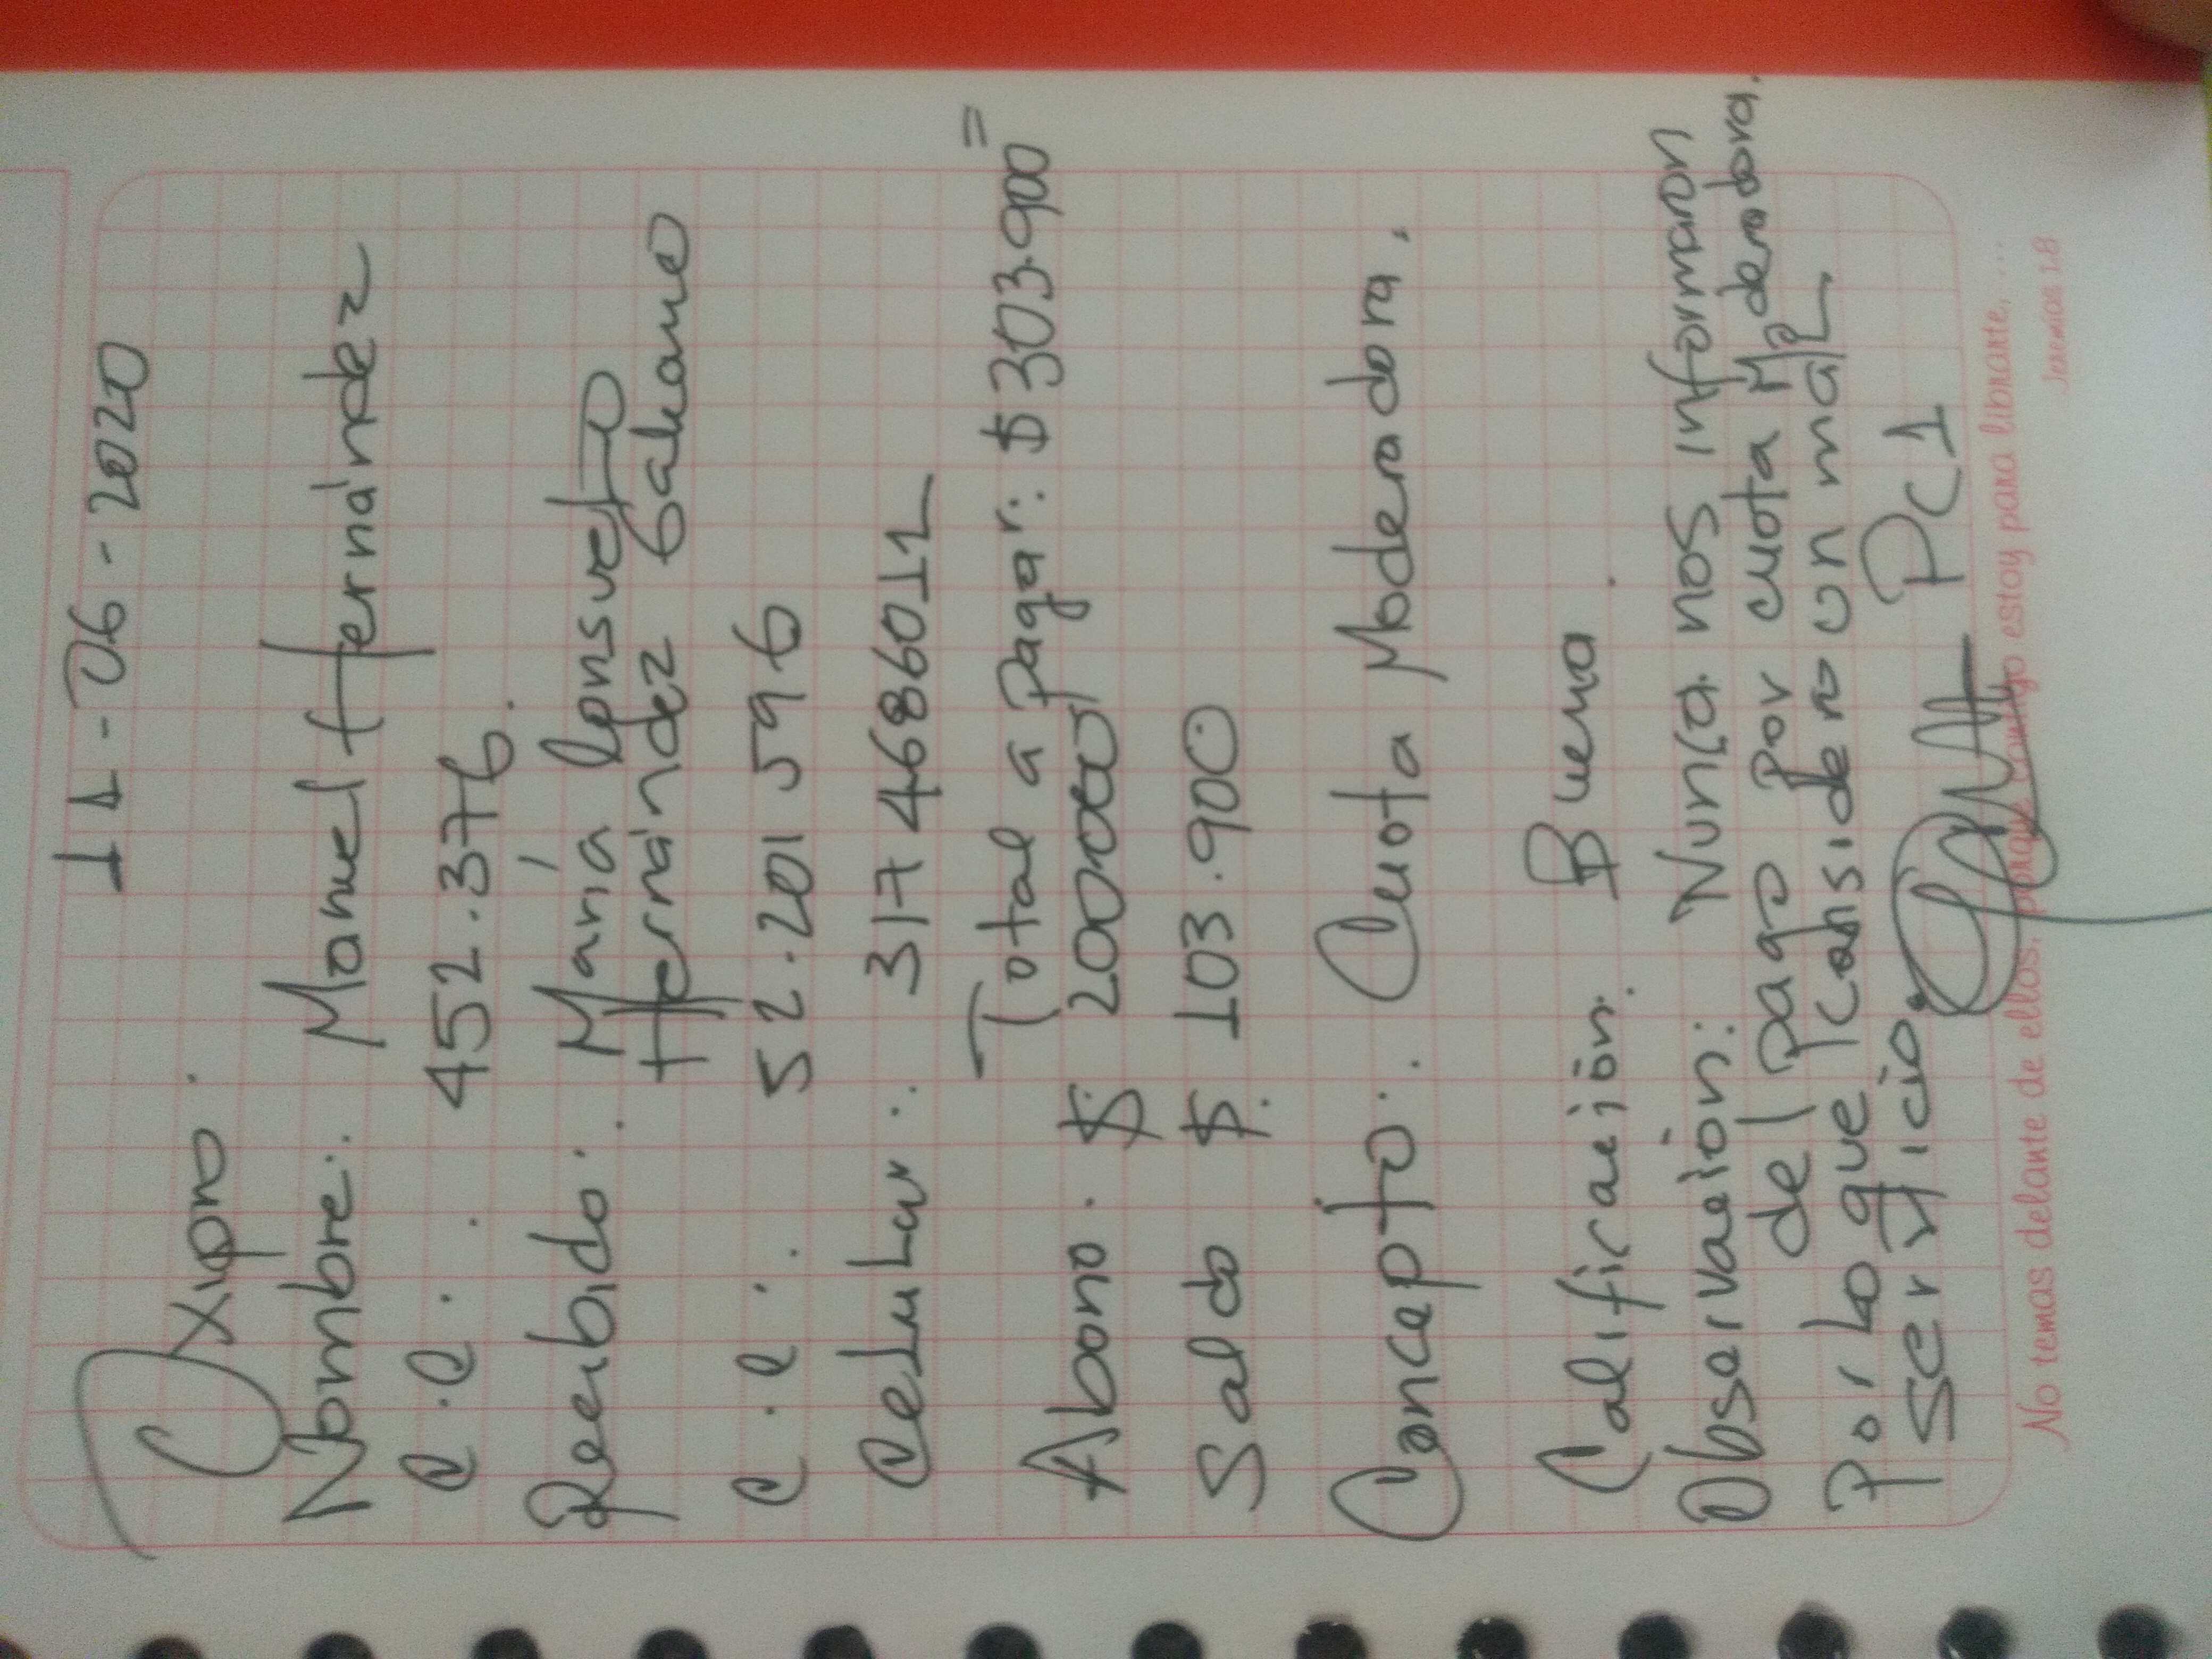 11-06-2020
Oxipro.
Nombre: Manuel Hernández
C.C.: 452.376.
Recibido: María Consuelo
Hernández Galeano
C.C.: 52.201 596
Celular: 317 4686011
Total a pagar: $303.900=
Abono: $ 200000
Saldo $ 103.900
Concepto: Cuota Moderadora.
Calificación: Buena.
Observación: Nunca nos informaron
del pago por cuota Moderadora.
Por lo que considero un mal
servicio. PC1
No temas delante de ellos, porque contigo estoy para librarte, ...
Jeremías 1:8